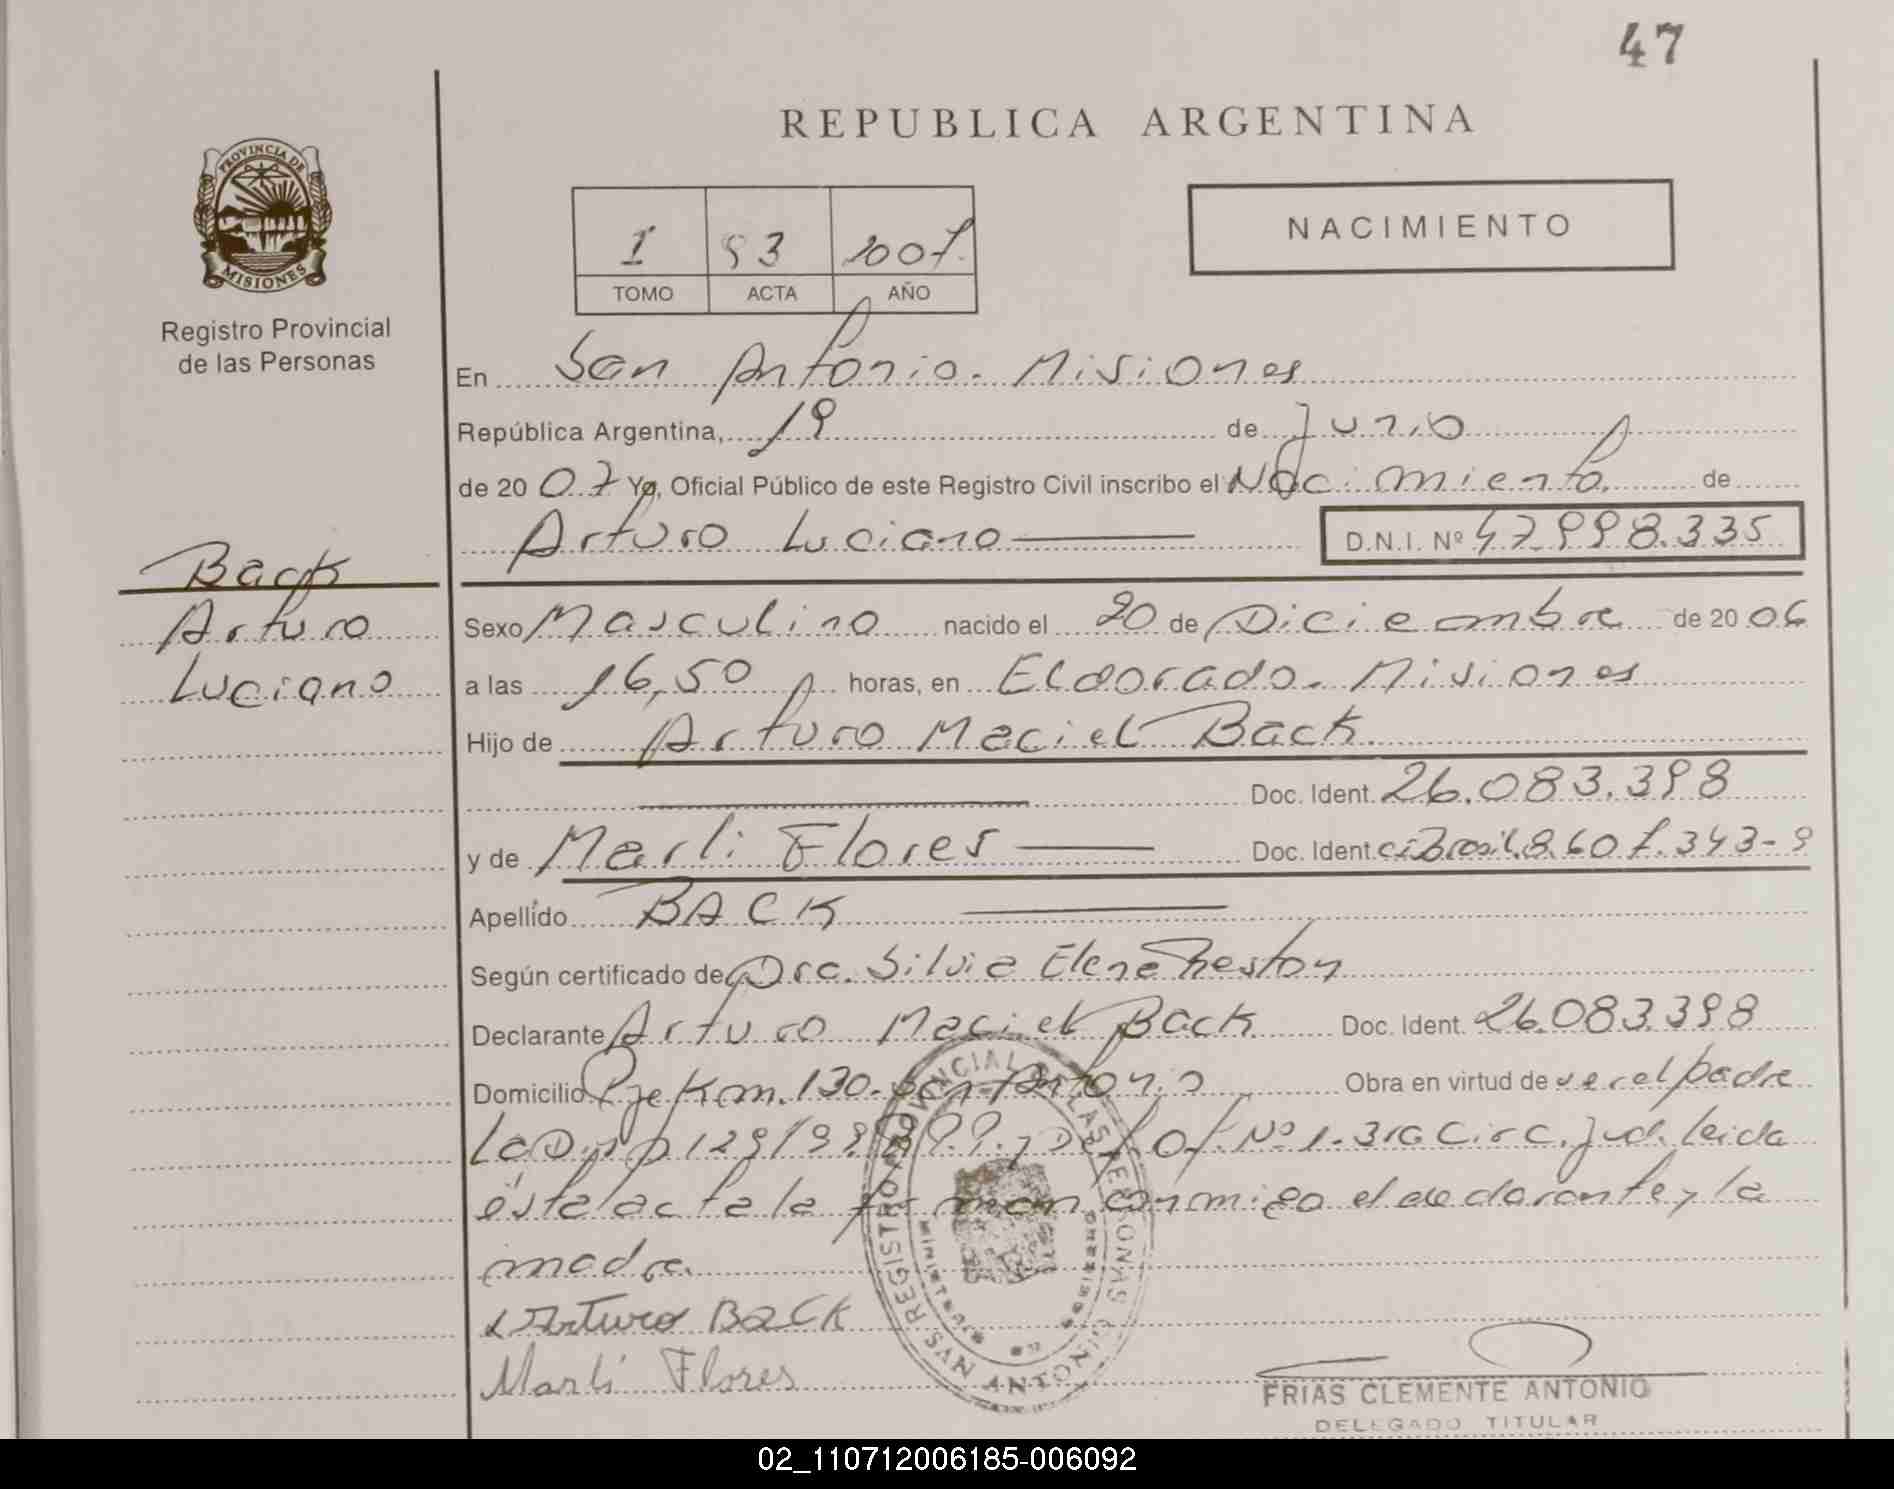 47
REPUBLICA ARGENTINA
PROVINCIA DE
MISIONES
Registro Provincial
de las Personas
1 93 2007
TOMO ACTA AÑO
NACIMIENTO
En San Antonio. Misiones
República Argentina, 19 de Junio
de 20 07 Yo, Oficial Público de este Registro Civil inscribo el Nacimiento. de
Arturo Luciano D.N.I. Nº 47.998.335
Back
Arturo
Luciano
Sexo Masculino nacido el 20 de Diciembre de 20 06
a las 16,50 horas, en Eldorado. Misiones
Hijo de Arturo Maciel Back
Doc. Ident. 26.083.398
y de Marli Flores Doc. Ident. ci Brasil. 8.607.343-9
Apellido BACK
Según certificado de Dra. Silvia Elena
Declarante Arturo Maciel Back Doc. Ident. 26.083.398
Domicilio Pje Km. 130. San Antonio Obra en virtud de ser el padre
129/99. Of. Nº 1. 3ra Circ. Jud. leida
ésta acta la firman conmigo el declarante y la
madre.
Arturo BACK
Marli Flores
REGISTRO PROVINCIAL DE LAS PERSONAS
SAN ANTONIO
FRIAS CLEMENTE ANTONIO
DELEGADO TITULAR
02_110712006185-006092